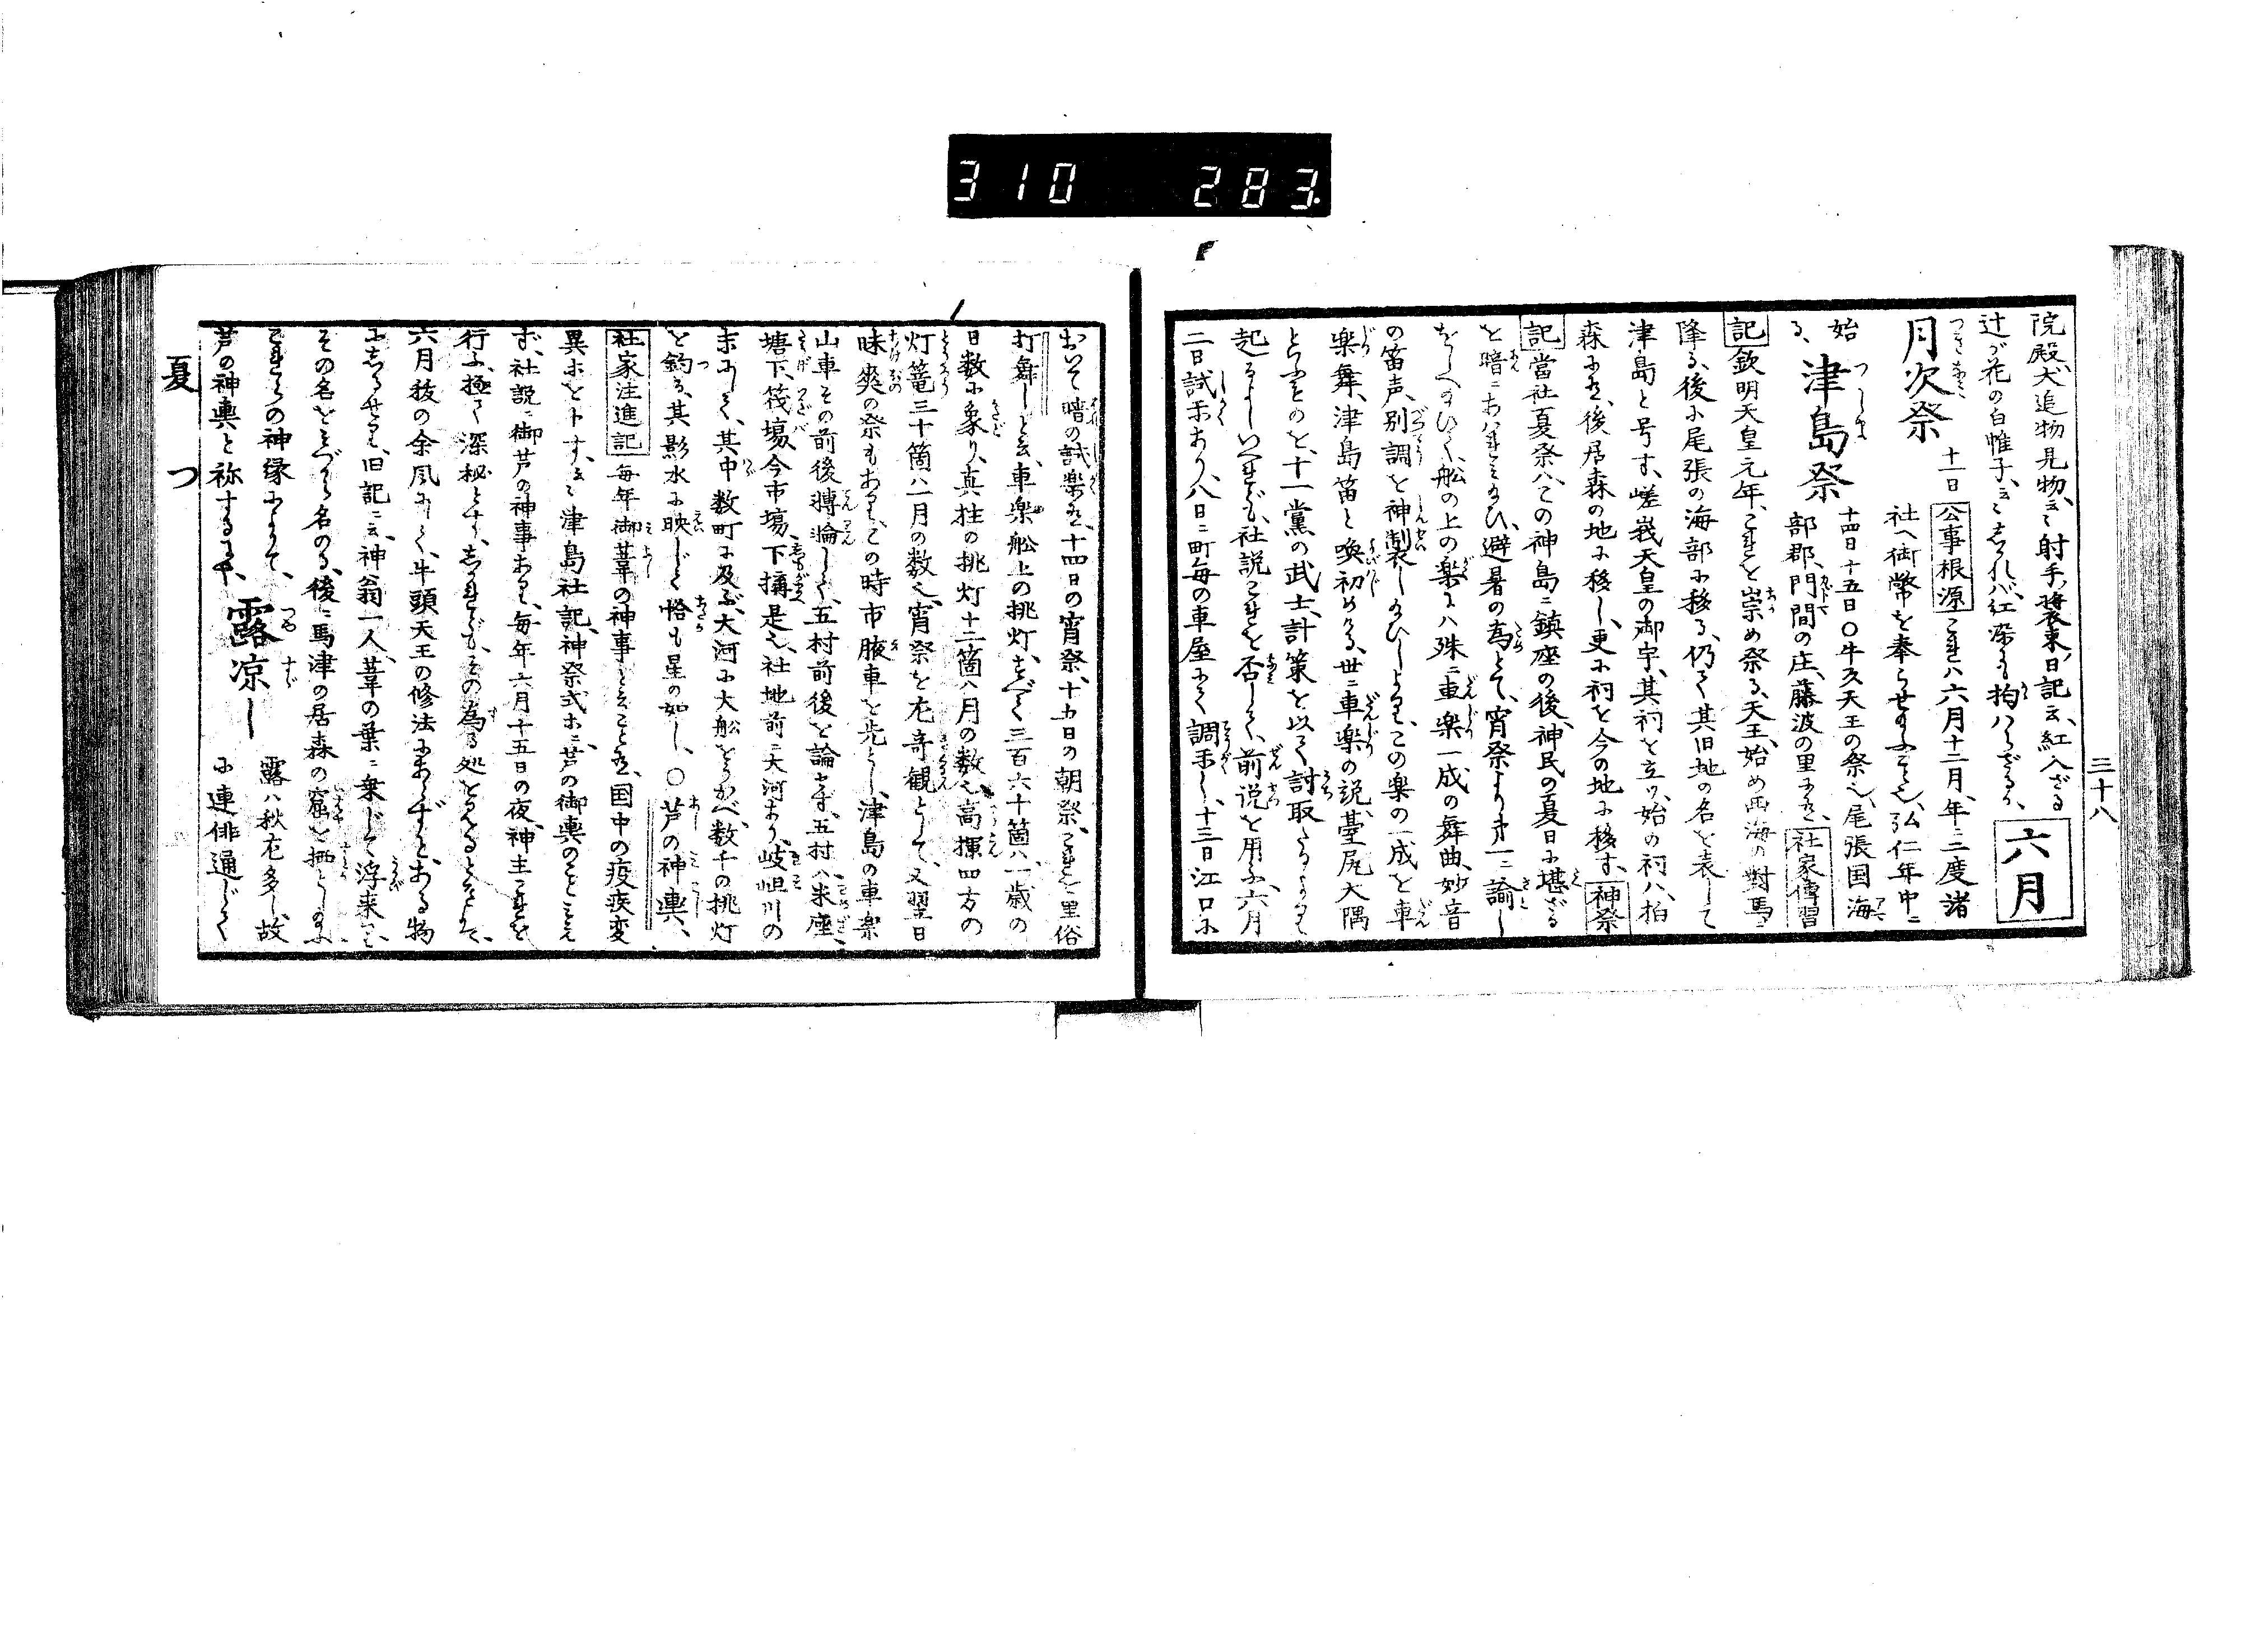 310 283.
三十八
院殿、犬追物見物、云云射手、装束、日記云、紅入ざる
辻が花の白帷子、云云しかれバ、紅染にも拘ハらざるか、
六月
月次祭
つきなミ
十一日
公事根源
これハ六月十二月、年ニ二度諸
社へ御幣を奉らせ給ふこと也、弘仁年中ニ
始る、
津島祭
つしま
十四日十五日〇牛头天王の祭也、尾張国海
部郡、門間の庄、藤波の里にあり、
社家傳習
記
欽明天皇元年、これを崇め祭る、天王、始め西海の對馬ニ
降る、後に尾張の海部に移る、仍て其旧地の名を表して
津島と号す、嵯峩天皇の御宇、其祠を立ツ、始の祠ハ、柏
森にあり、後居森の地に移し、更に祠を今の地に移す、
神祭
記
當社夏祭ハ、この神島ニ鎮座の後、神民の夏日に堪ざる
を暗ニあハれミ給ひ、避暑の為とて、宵祭より第一ニ諭し
をしへ給ひて、船の上の楽にハ殊ニ車楽一成の舞曲、妙音
の笛声、别調を神製し給ひしより、この楽の一成を車
楽舞、津島笛と喚初めける、世ニ車楽の説、臺尻大隅
といふものを、十一黨の武士、計策を以て討取たるよりして
起るよしいへれども、社説これを否しとして、前説を用ふ、六月
二日試楽あり、八日ニ町毎の車屋にて調楽し、十三日江口に
おいて暗の試楽あり、十四日の宵祭、十五日の朝祭、これを里俗
打舞しと云、車楽舩上の挑灯、すべて三百六十箇ハ、一歳の
日数に象り、真柱の挑灯十二箇ハ月の数也、高揮四方の
灯篭三十箇ハ一月の数也、宵祭を尤奇観として、又翌日
昧爽の祭もあり、この時市腋車を先とし、津島の車楽
山車その前後轉淪して、五村前後を論ぜず、五村ハ米座、
塘下、筏塲、今市塲、下搆是也、社地前ニ天河あり、岐岨川の
末にして、其中数町に及ぶ、大河に大船をうかべ、数千の挑灯
を釣る、其影水に映じて恰も星の如し、〇芦の神輿、
社家注進記
毎年御葦の神事といふことあり、国中の疫疾変
異ホを卜す、云云津島社記、神祭式ホニ、芦の御輿のこと見え
ず、社説ニ御芦の神事あり、毎年六月十五日の夜、神主これを
行ふ、極て深秘とす、しかれども、その為る処をかんがふるに、
六月祓の余風にして、牛頭天王の修法にあらずと、ある物
にしるせり、旧記ニ云、神翁一人、葦の葉ニ乗じて浮来て、
その名をミづから名のる、後ニ馬津の居森の窟を栖とし給ふ、
これらの神縁によりて、
芦の神輿と称するなり、
露凉し
つゆすゞ
露ハ秋尤多し、故
に連俳通じて
夏
つ